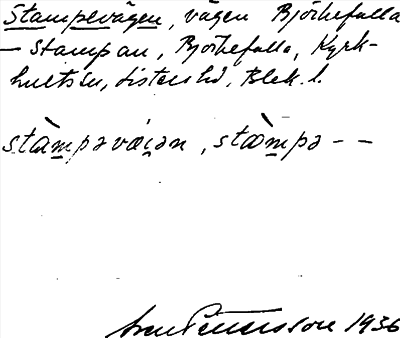 Stampevägen, vägen Björkefalla
— Stampan, Björkefalla, Kyrk-
hults sn, Listers hd, Blek. l.
stàmpəvæ̀i̯ən, stæ̀mpə – –
Pettersson 1936